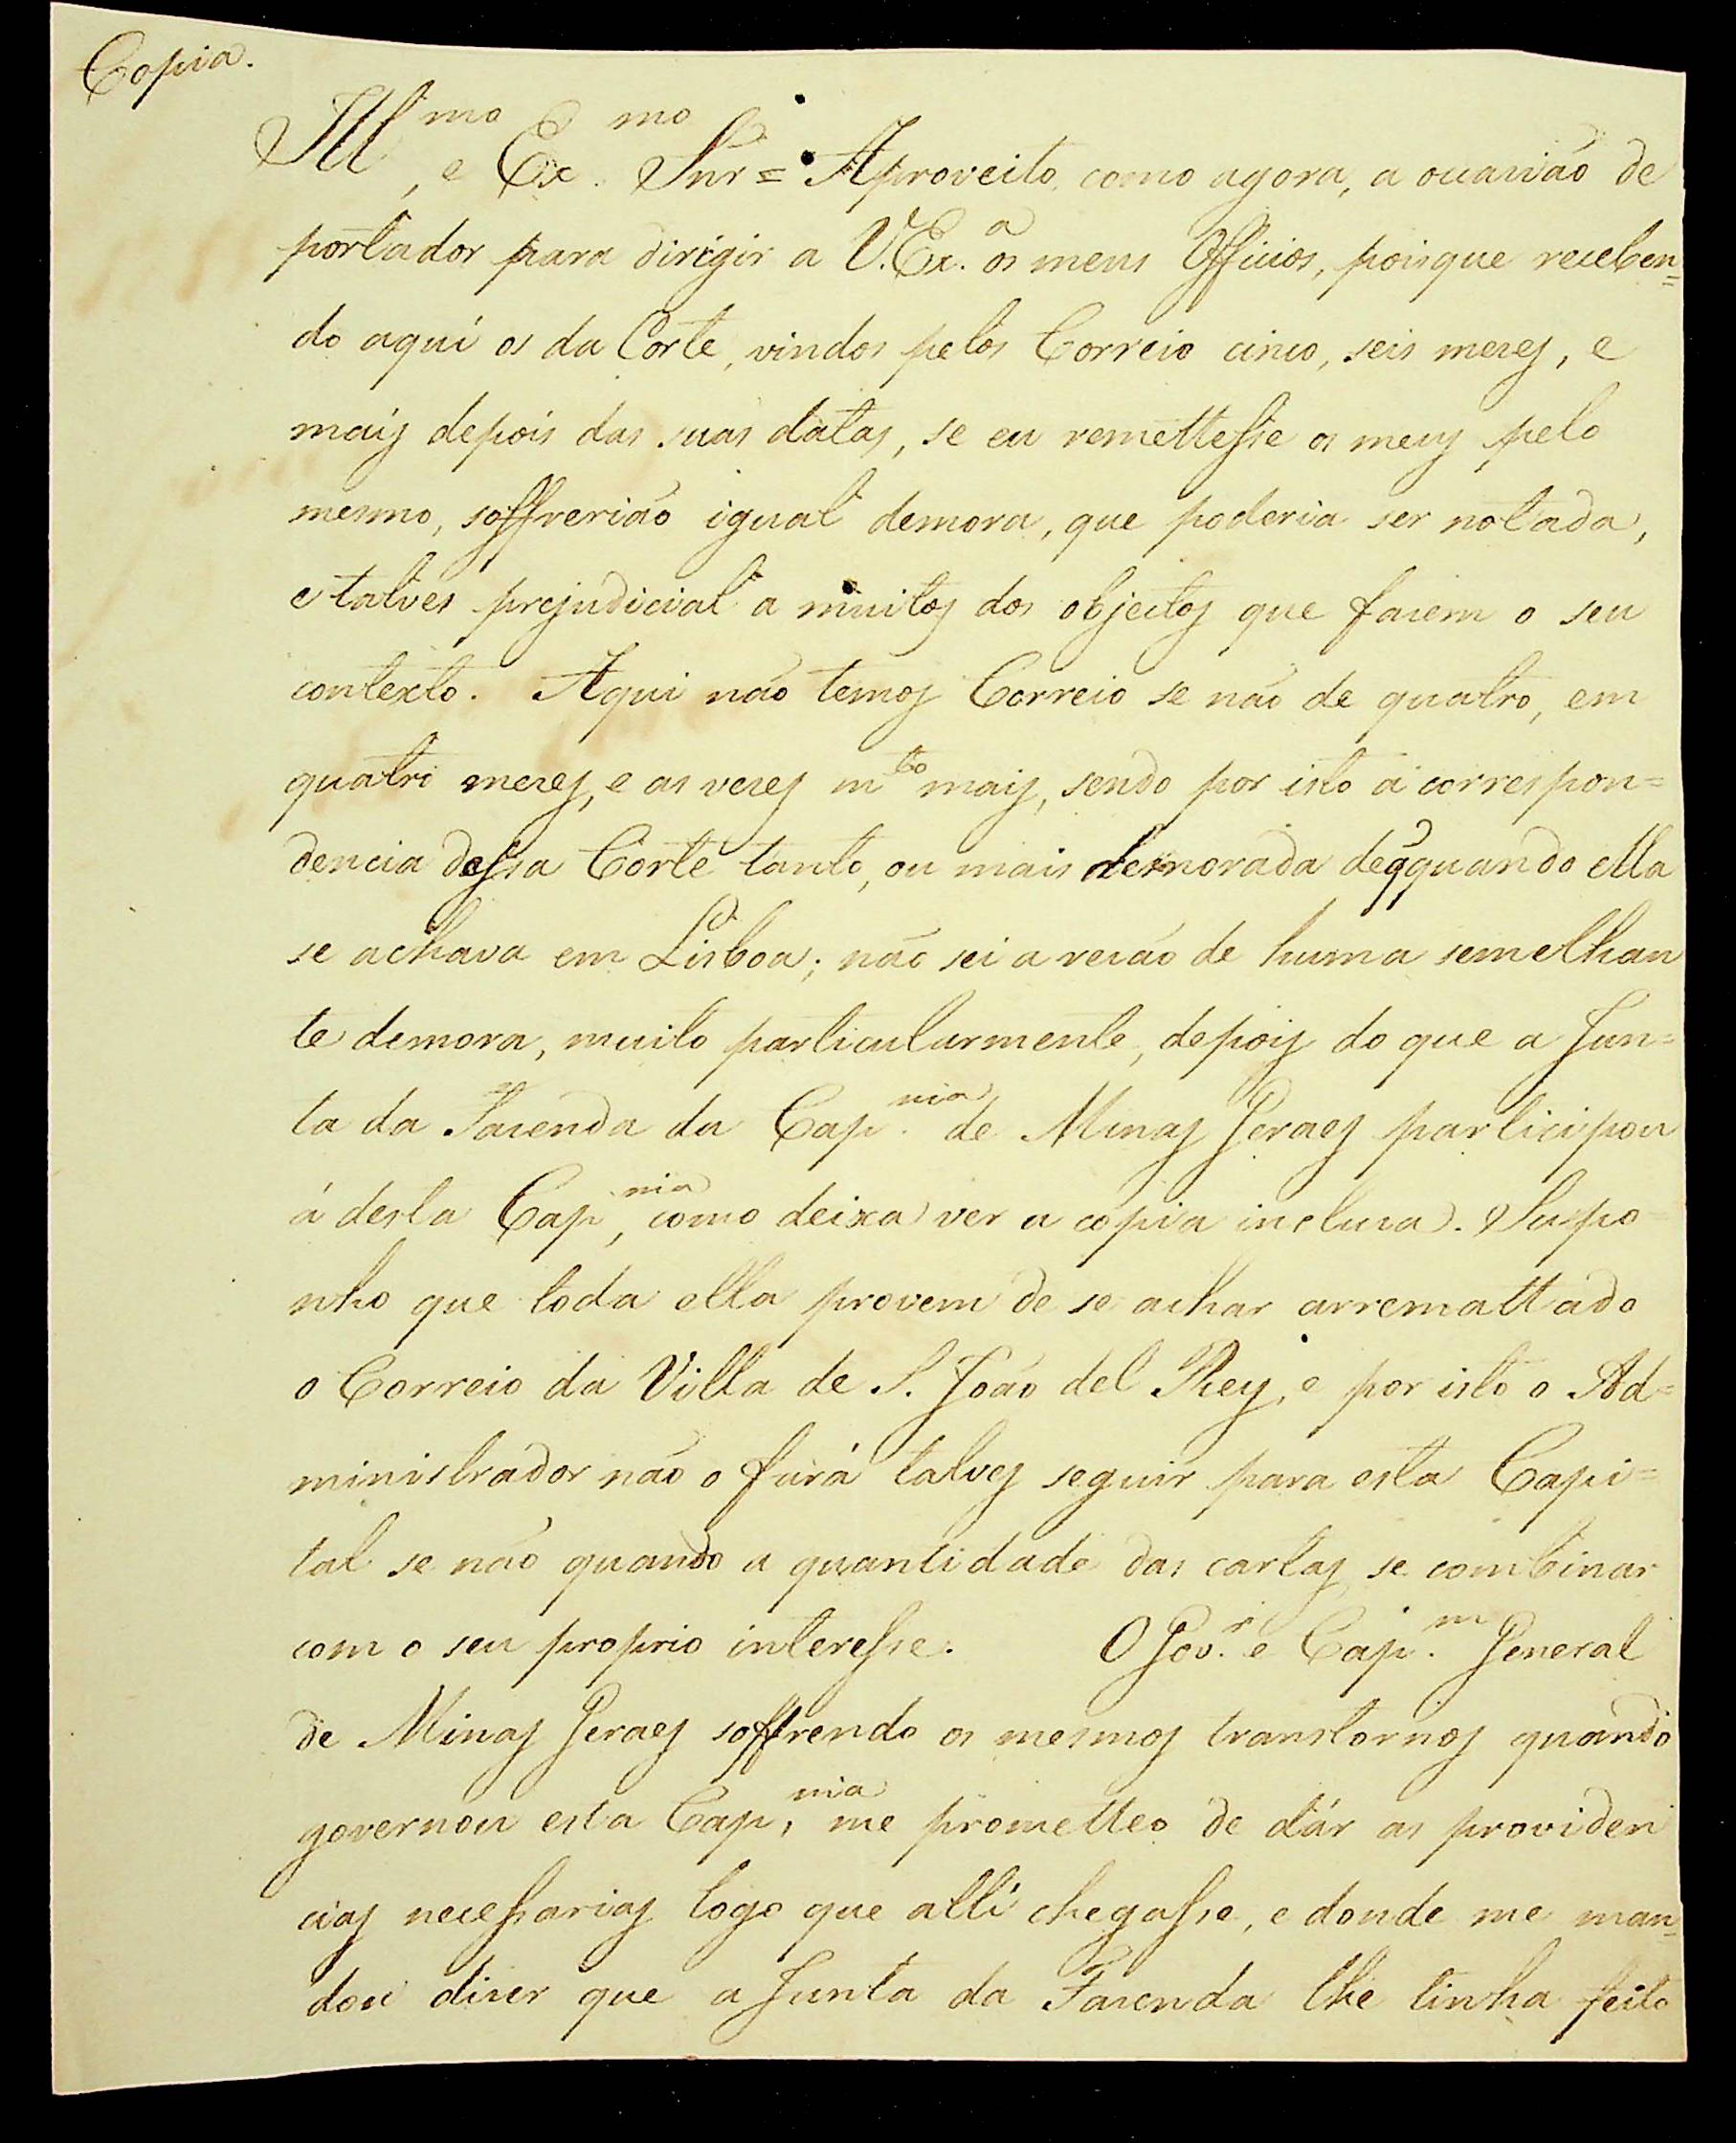 Copia.
Ill.mo, e Ex.mo Snr = Aproveito, como agora, a occazião de
portador para dirigir a V.Ex.a os meus Officios, poisque receben=
do aqui os da Corte, vindos pelos Correio cinco, seis mezes, e
mais depois das suas datas, se eu remettesse os meus pelo
mesmo, soffrerião igual demora, que poderia ser notada,
e talvés prejudicial a muitos dos objectos que fazem o seu
contexto. Aqui não temos Correio se não de quatro, em
quatro mezes, e as vezes m.to mais, sendo por isto a correspon=
dencia dessa Corte tanto, ou mais demorada deq̃ quando ella
se achava em Lisboa; não sei a rezão de huma semelhan
te demora, muito particularmente, depois do que a Jun=
ta da Fazenda da Cap.nia de Minas Geraes participou
á desta Cap.nia, como deixa ver a cópia incluza. Supo=
nho que toda ella provem de se achar arremattado
o Correio da Villa de S. João del Rey, e por isto o Ad=
ministrador não o fará talves seguir para esta Capi=
tal se não quando a quantidade das cartas se combinar
com o seu proprio interesse. O Gov.r e Cap.m General
de Minas Geraes soffrendo os mesmos transtornos quando
governou esta Cap.nia, me prometteo de dár as providen
cias necessarias logo que alli chegasse, e donde me man=
dou dizer que a Junta da Fazenda lhe tinha feito